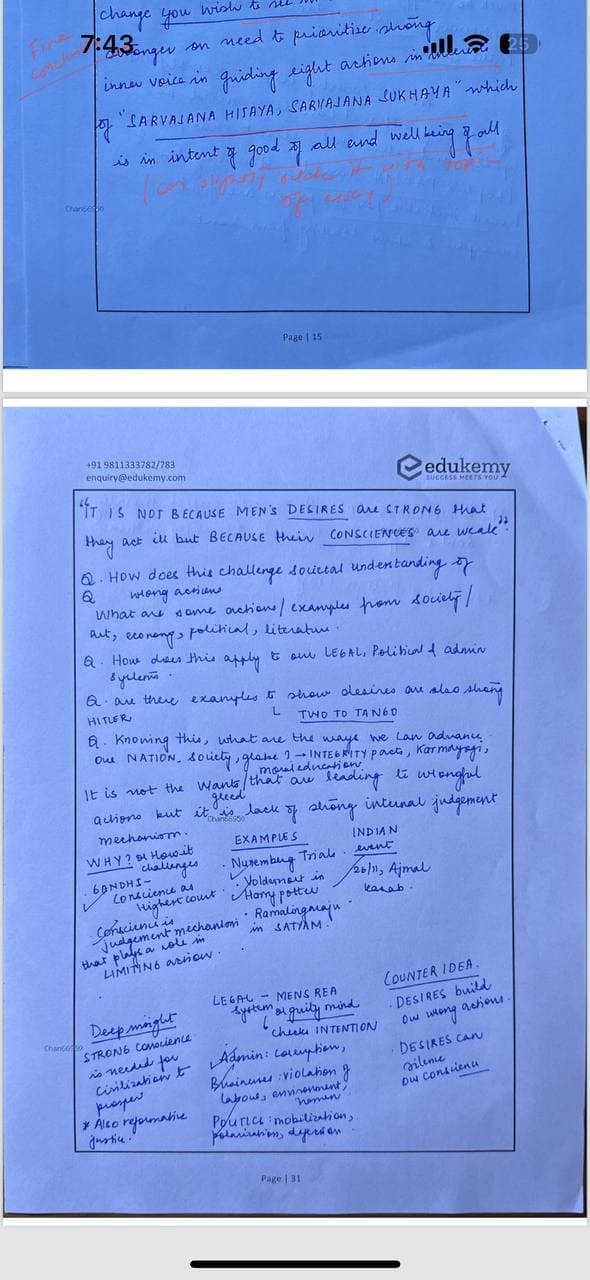 change you wish to see in
Fine
7:43
25
stronger on need to prioritize strong
inner voice in guiding right actions in interest
of "SARVAJANA HITAYA, SARVAJANA SUKHAYA" which
is in intent of good of all and well being of all
(can slightly relate it with topic
of essay).
Page | 15
+91 9811333782/783
enquiry@edukemy.com
edukemy
SUCCESS MEETS YOU
"IT IS NOT BECAUSE MEN'S DESIRES are STRONG that
they act ill but BECAUSE their CONSCIENCES are weak".
Q. HOW does this challenge societal understanding of
Q wrong actions
What are some actions/examples from society/
art, economy, political, literature.
Q. How does this apply to our LEGAL, Political & admin
systems.
Q. are there examples to show desires are also strong
HITLER TWO TO TANGO
Q. Knowing this, what are the ways we can advance
our NATION, society, globe? → INTEGRITY pacts, Karmayogi,
moral education
It is not the wants/that are leading to wrongful
greed
actions but it is lack of strong internal judgement
mechanism.
WHY? or How it
challenges
EXAMPLES
INDIAN
event
. GANDHI -
Conscience as
Highest court.
. Nuremberg Trials.
. Voldemort in
Harry potter
. Ramalingaraju
in SATYAM.
26/11, Ajmal
Kasab.
Conscience is
judgement mechanism
that plays a role in
LIMITING action.
Deep insight
STRONG conscience
is needed for
civilization to
prosper
* Also reformative
justice.
LEGAL - MENS REA
System or guilty mind
checks INTENTION
Admin: corruption,
Businesses: violation of
labour, environment,
women
POLITICS: mobilization,
polarisation, defection.
COUNTER IDEA.
. DESIRES build
our wrong actions.
. DESIRES can
silence
our conscience
Page | 31